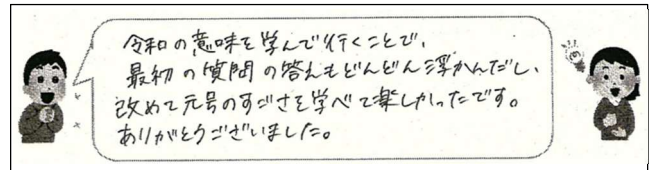 令和の意味を学んで行くことで、
最初の質問の答えもどんどん浮かんだし、
改めて元号のすごさを学べて楽しかったです。
ありがとうございました。